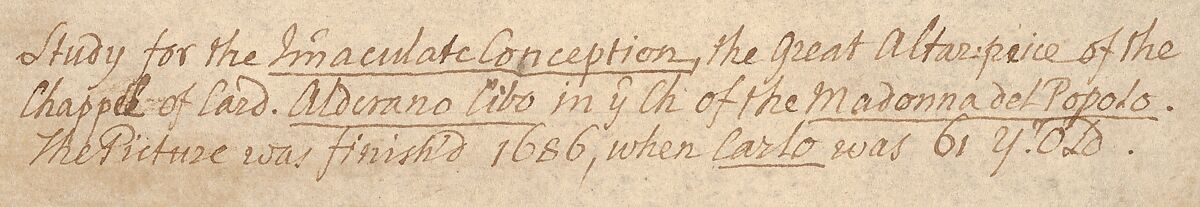 Study for the Im̃aculate Conception, the great Altar-peice of the
Chappel of Card. Alderano Cibo in ẏ Ch of the Madonna del Popolo.
The Picture was finish'd 1686, when Carlo was 61 Y.ʳ Old.